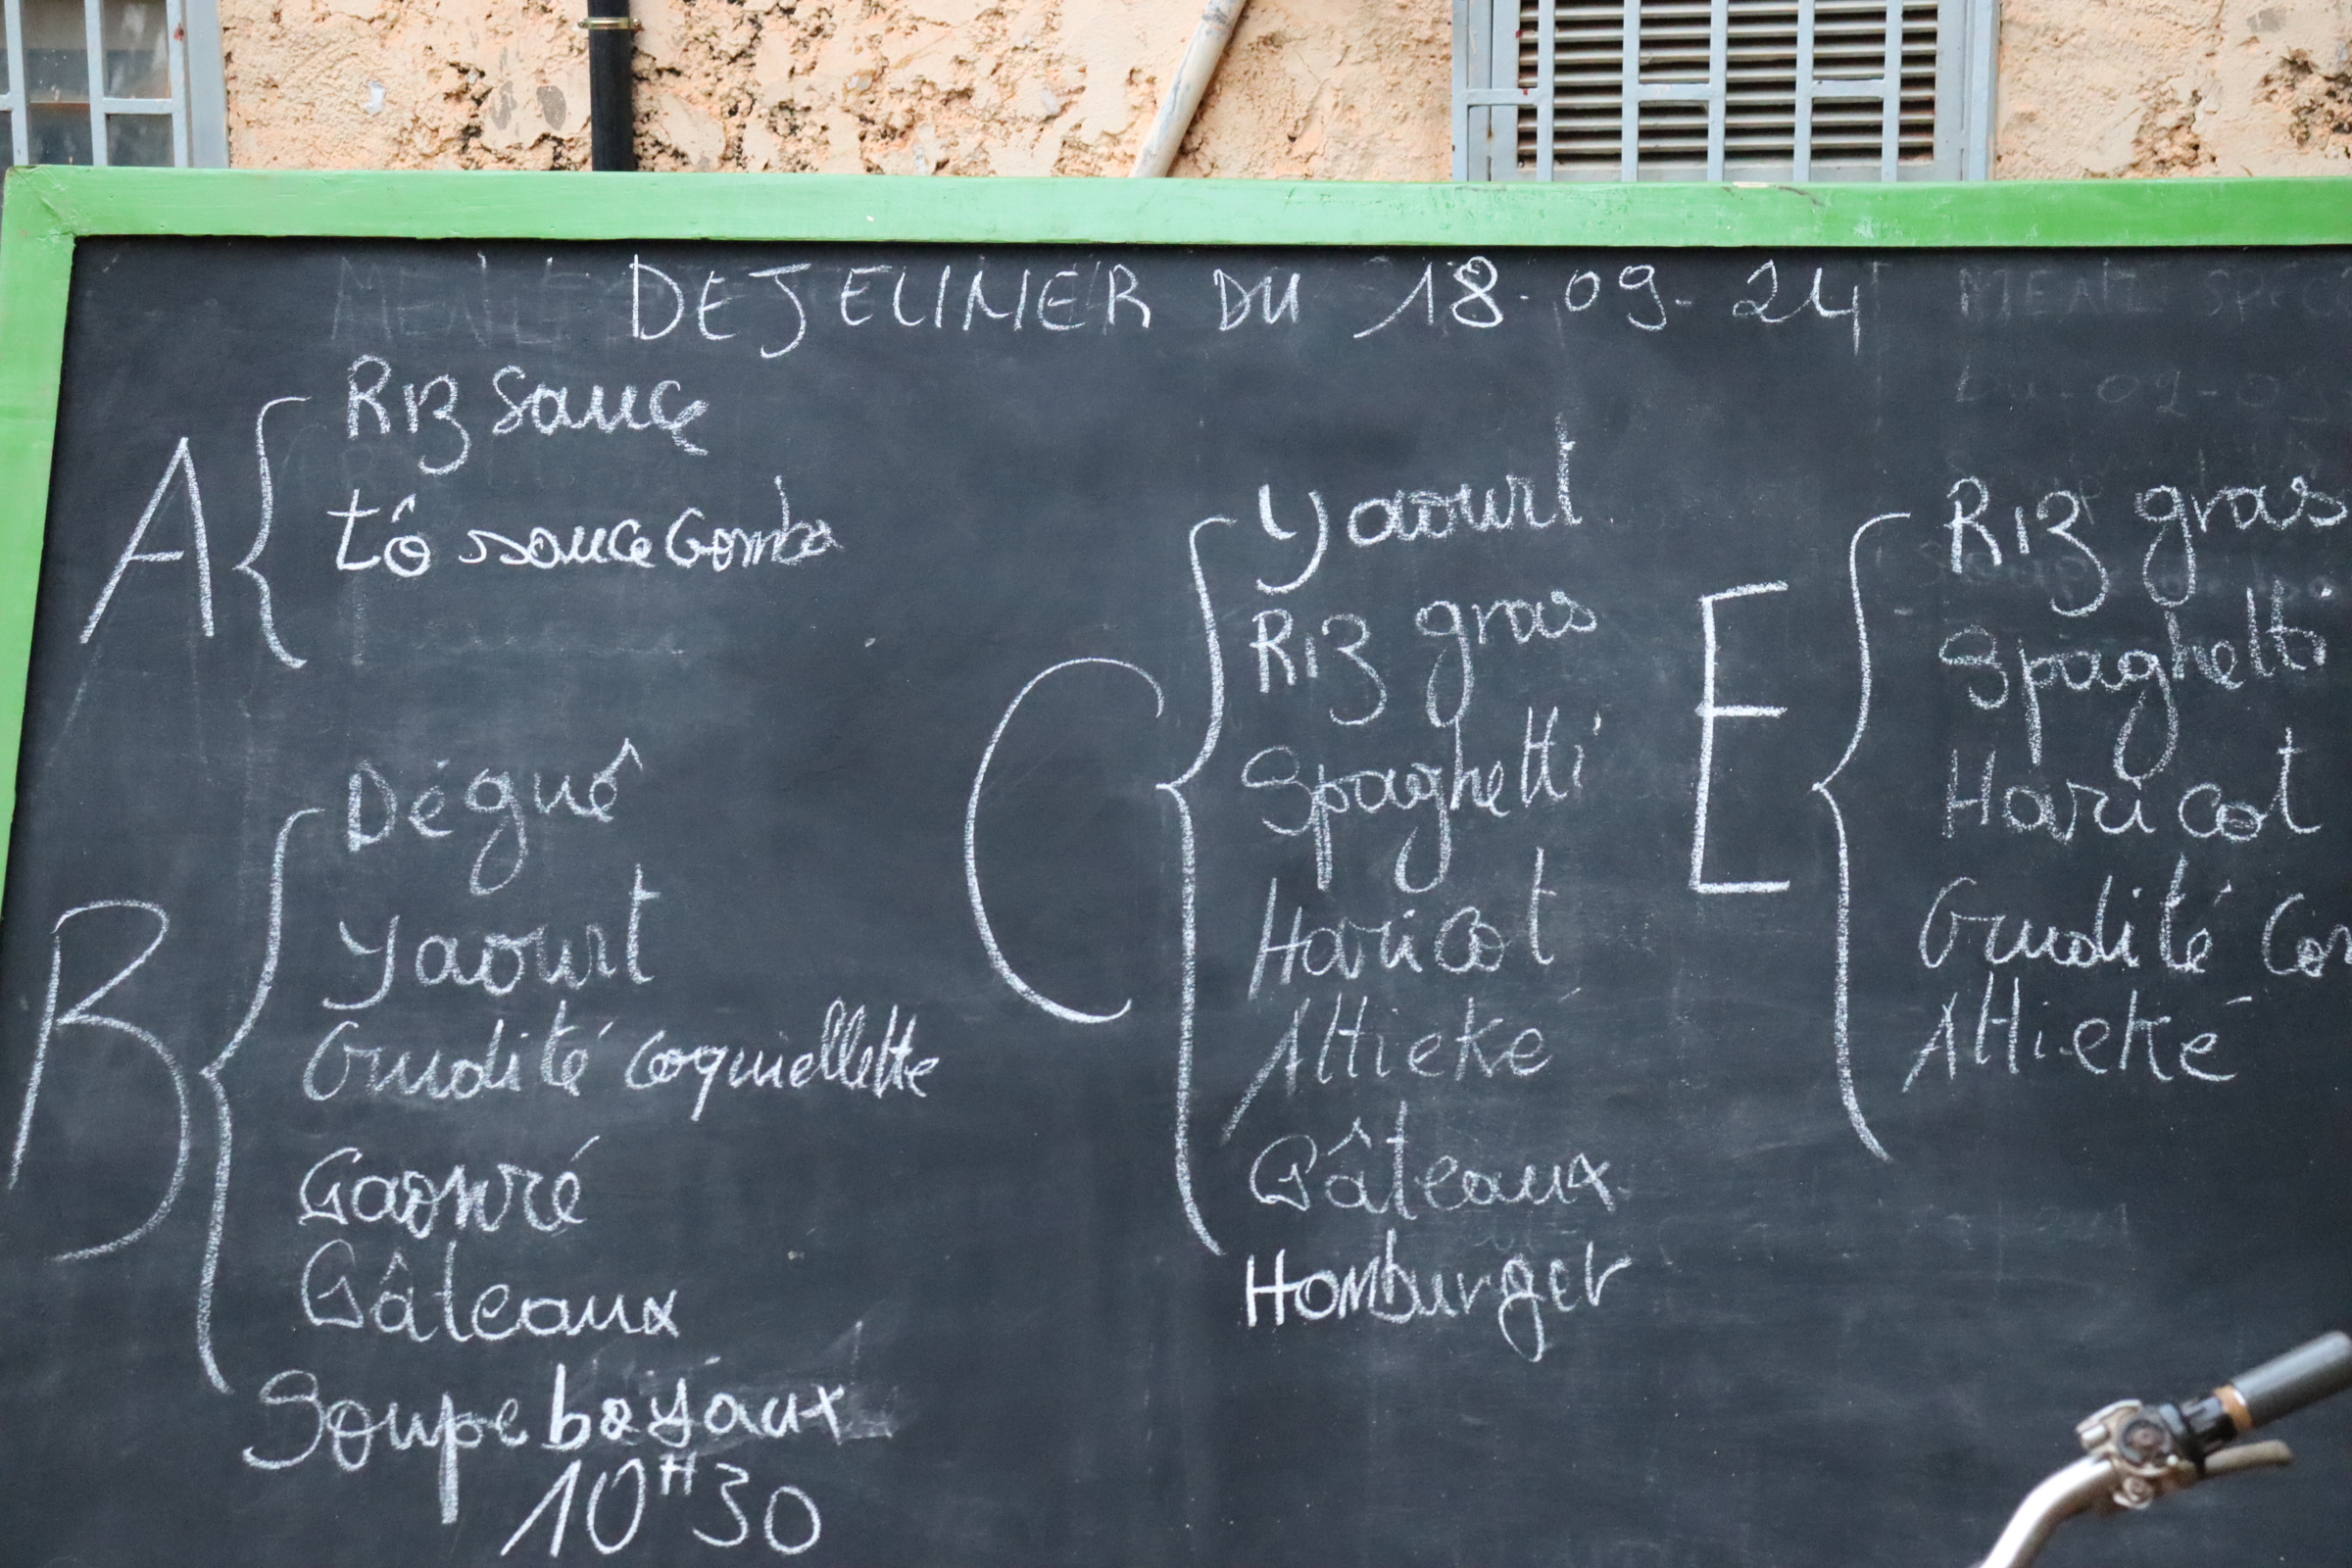 DEJEUNER DU 18-09-24
A
Riz sauce
tô sauce Gombo
B
Dégué
Yaourt
Crudité coquiellette
Gaonré
Gâteaux
Soupe boyaux
10H30
C
Yaourt
Riz gras
Spaghetti
Haricot
Attieké
Gâteaux
Homburger
E
Riz gras
Spaghetti
Haricot
Crudité Con
Attieké